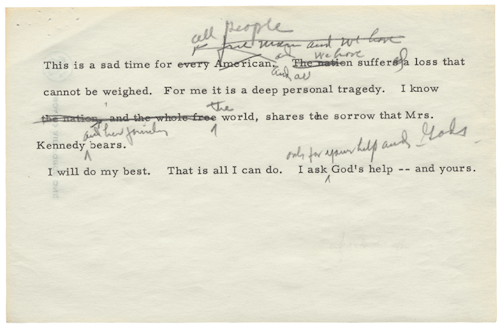 all people
free men and we have
This is a sad time for every American. The nation suffers a loss that
and we have
and all
ed
cannot be weighed. For me it is a deep personal tragedy. I know
the nation, and the whole free the world, shares the sorrow that Mrs.
and her family
Kennedy bears.
only for your help and God's
I will do my best. That is all I can do. I ask God's help -- and yours.